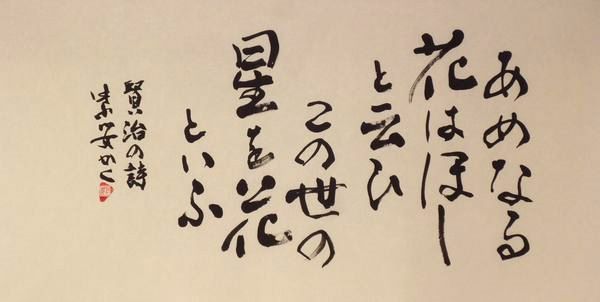 あめなる
花はほし
と云ひ
この世の
星を花
といふ
賢治の詩
紫安かく